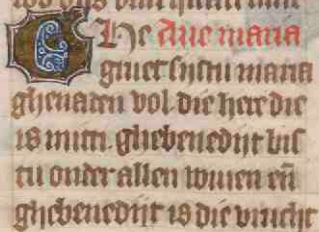 He Aue maria
gruet sijstu maria
ghenaten vol. die here die
is mitti. ghebenedijt bis
tu onder allen wiuen en̄
ghebenedijt is die vrucht